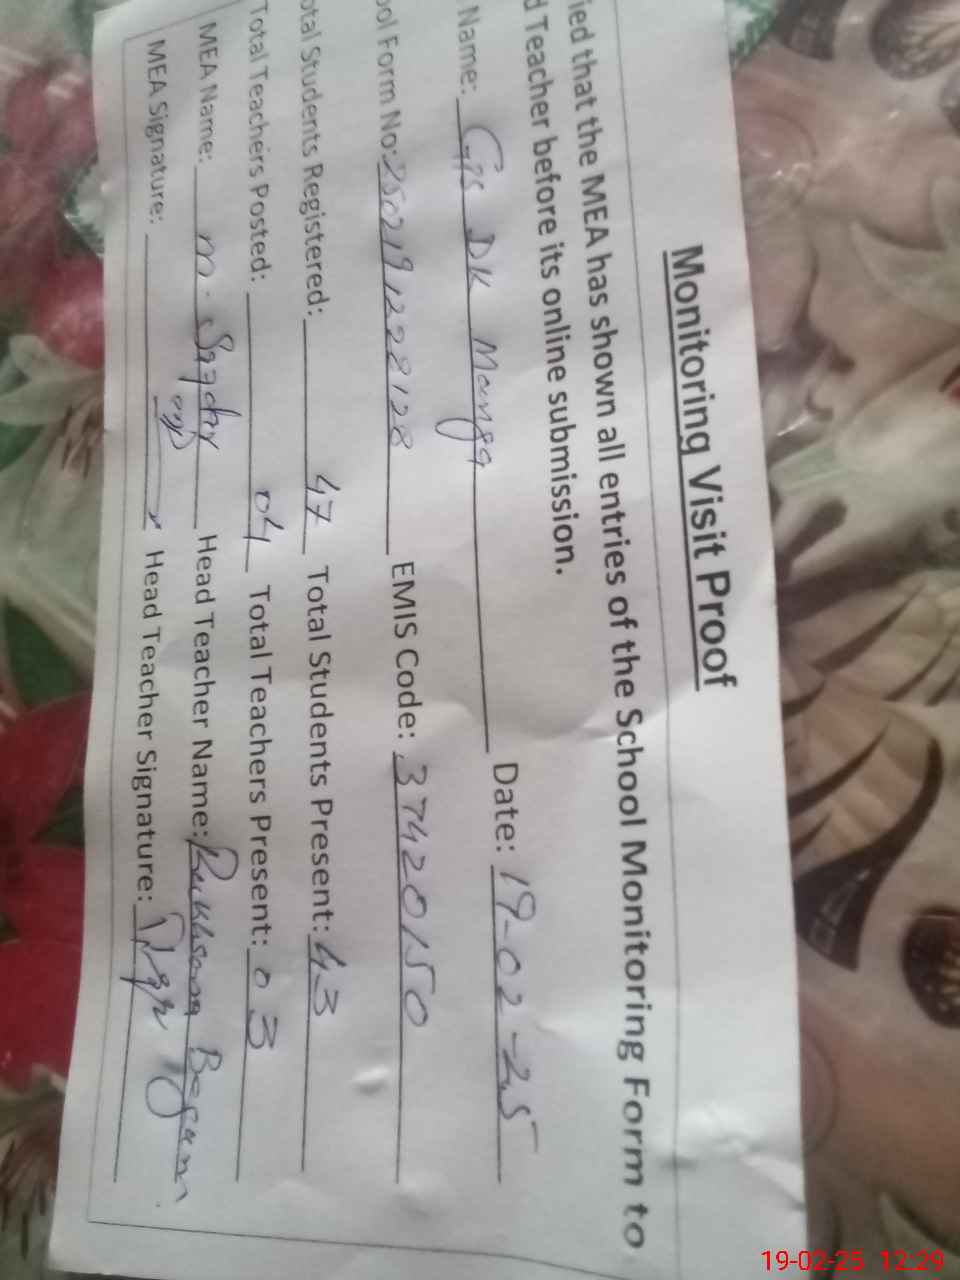 Monitoring Visit Proof
ied that the MEA has shown all entries of the School Monitoring Form to
d Teacher before its online submission.
Name: GPS DK Manga Date: 19-02-25
ool Form No: 250219122812 8 EMIS Code: 37420150
otal Students Registered: 47 Total Students Present: 43
Total Teachers Posted: 04 Total Teachers Present: 03
MEA Name: M. Head Teacher Name: Rukhsana Begum
MEA Signature: Head Teacher Signature:
19-02-25 12:29